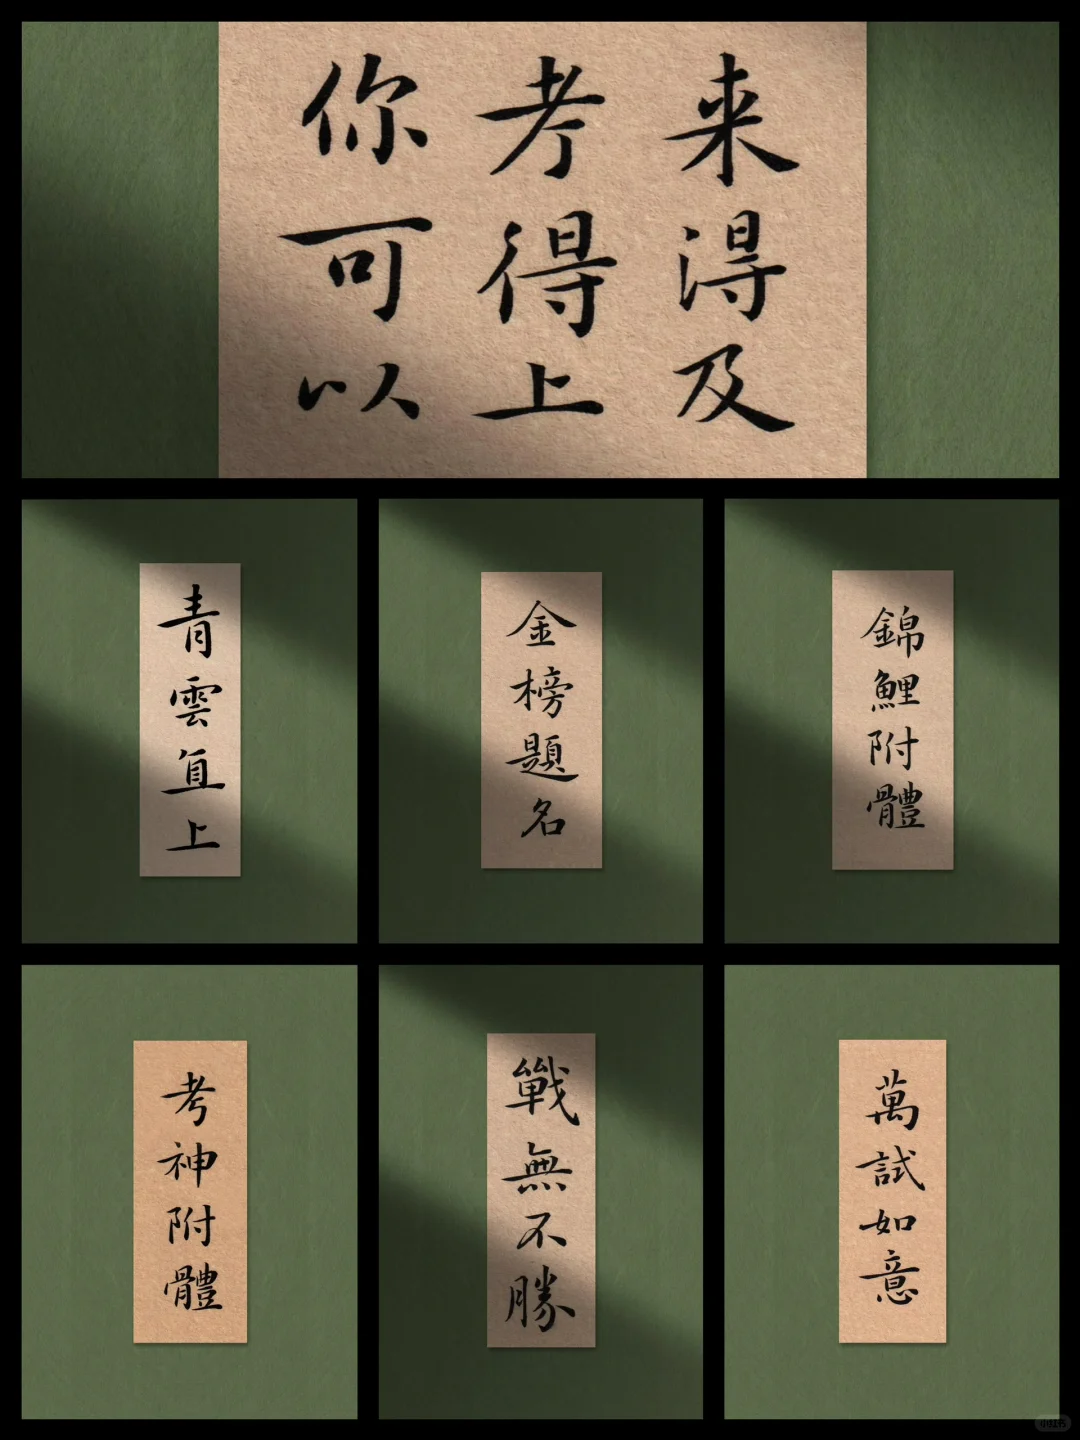 来淂及
考得上
你可以
青雲直上
金榜題名
錦鯉附體
考神附體
戰無不勝
萬試如意